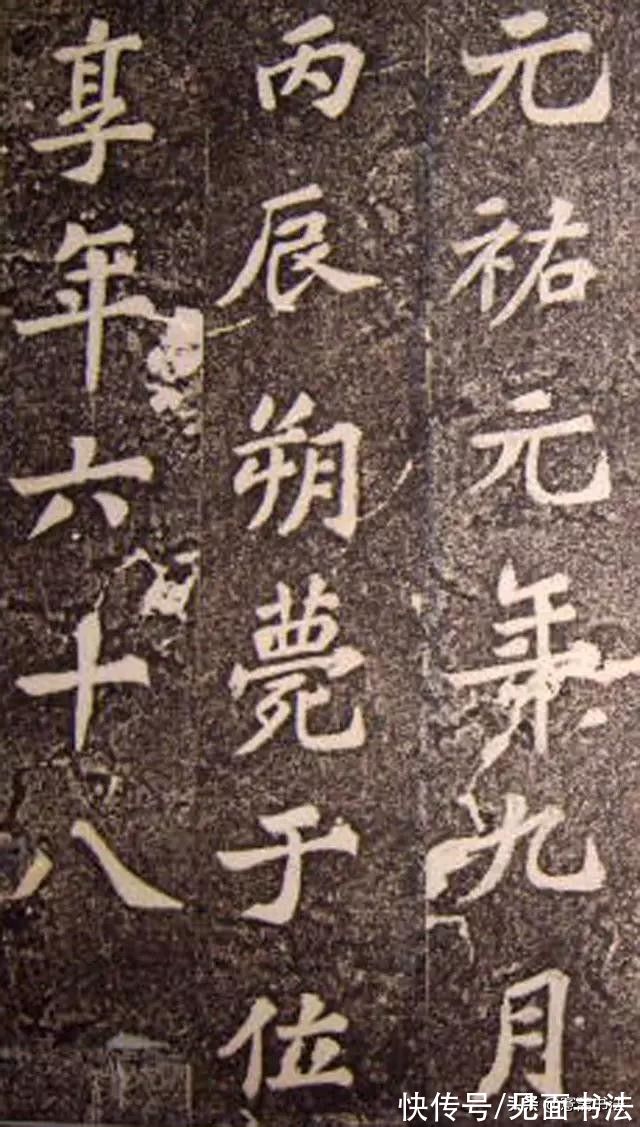 元祐元年九月
丙辰朔薨于位
享年六十八
快传号/见面书法